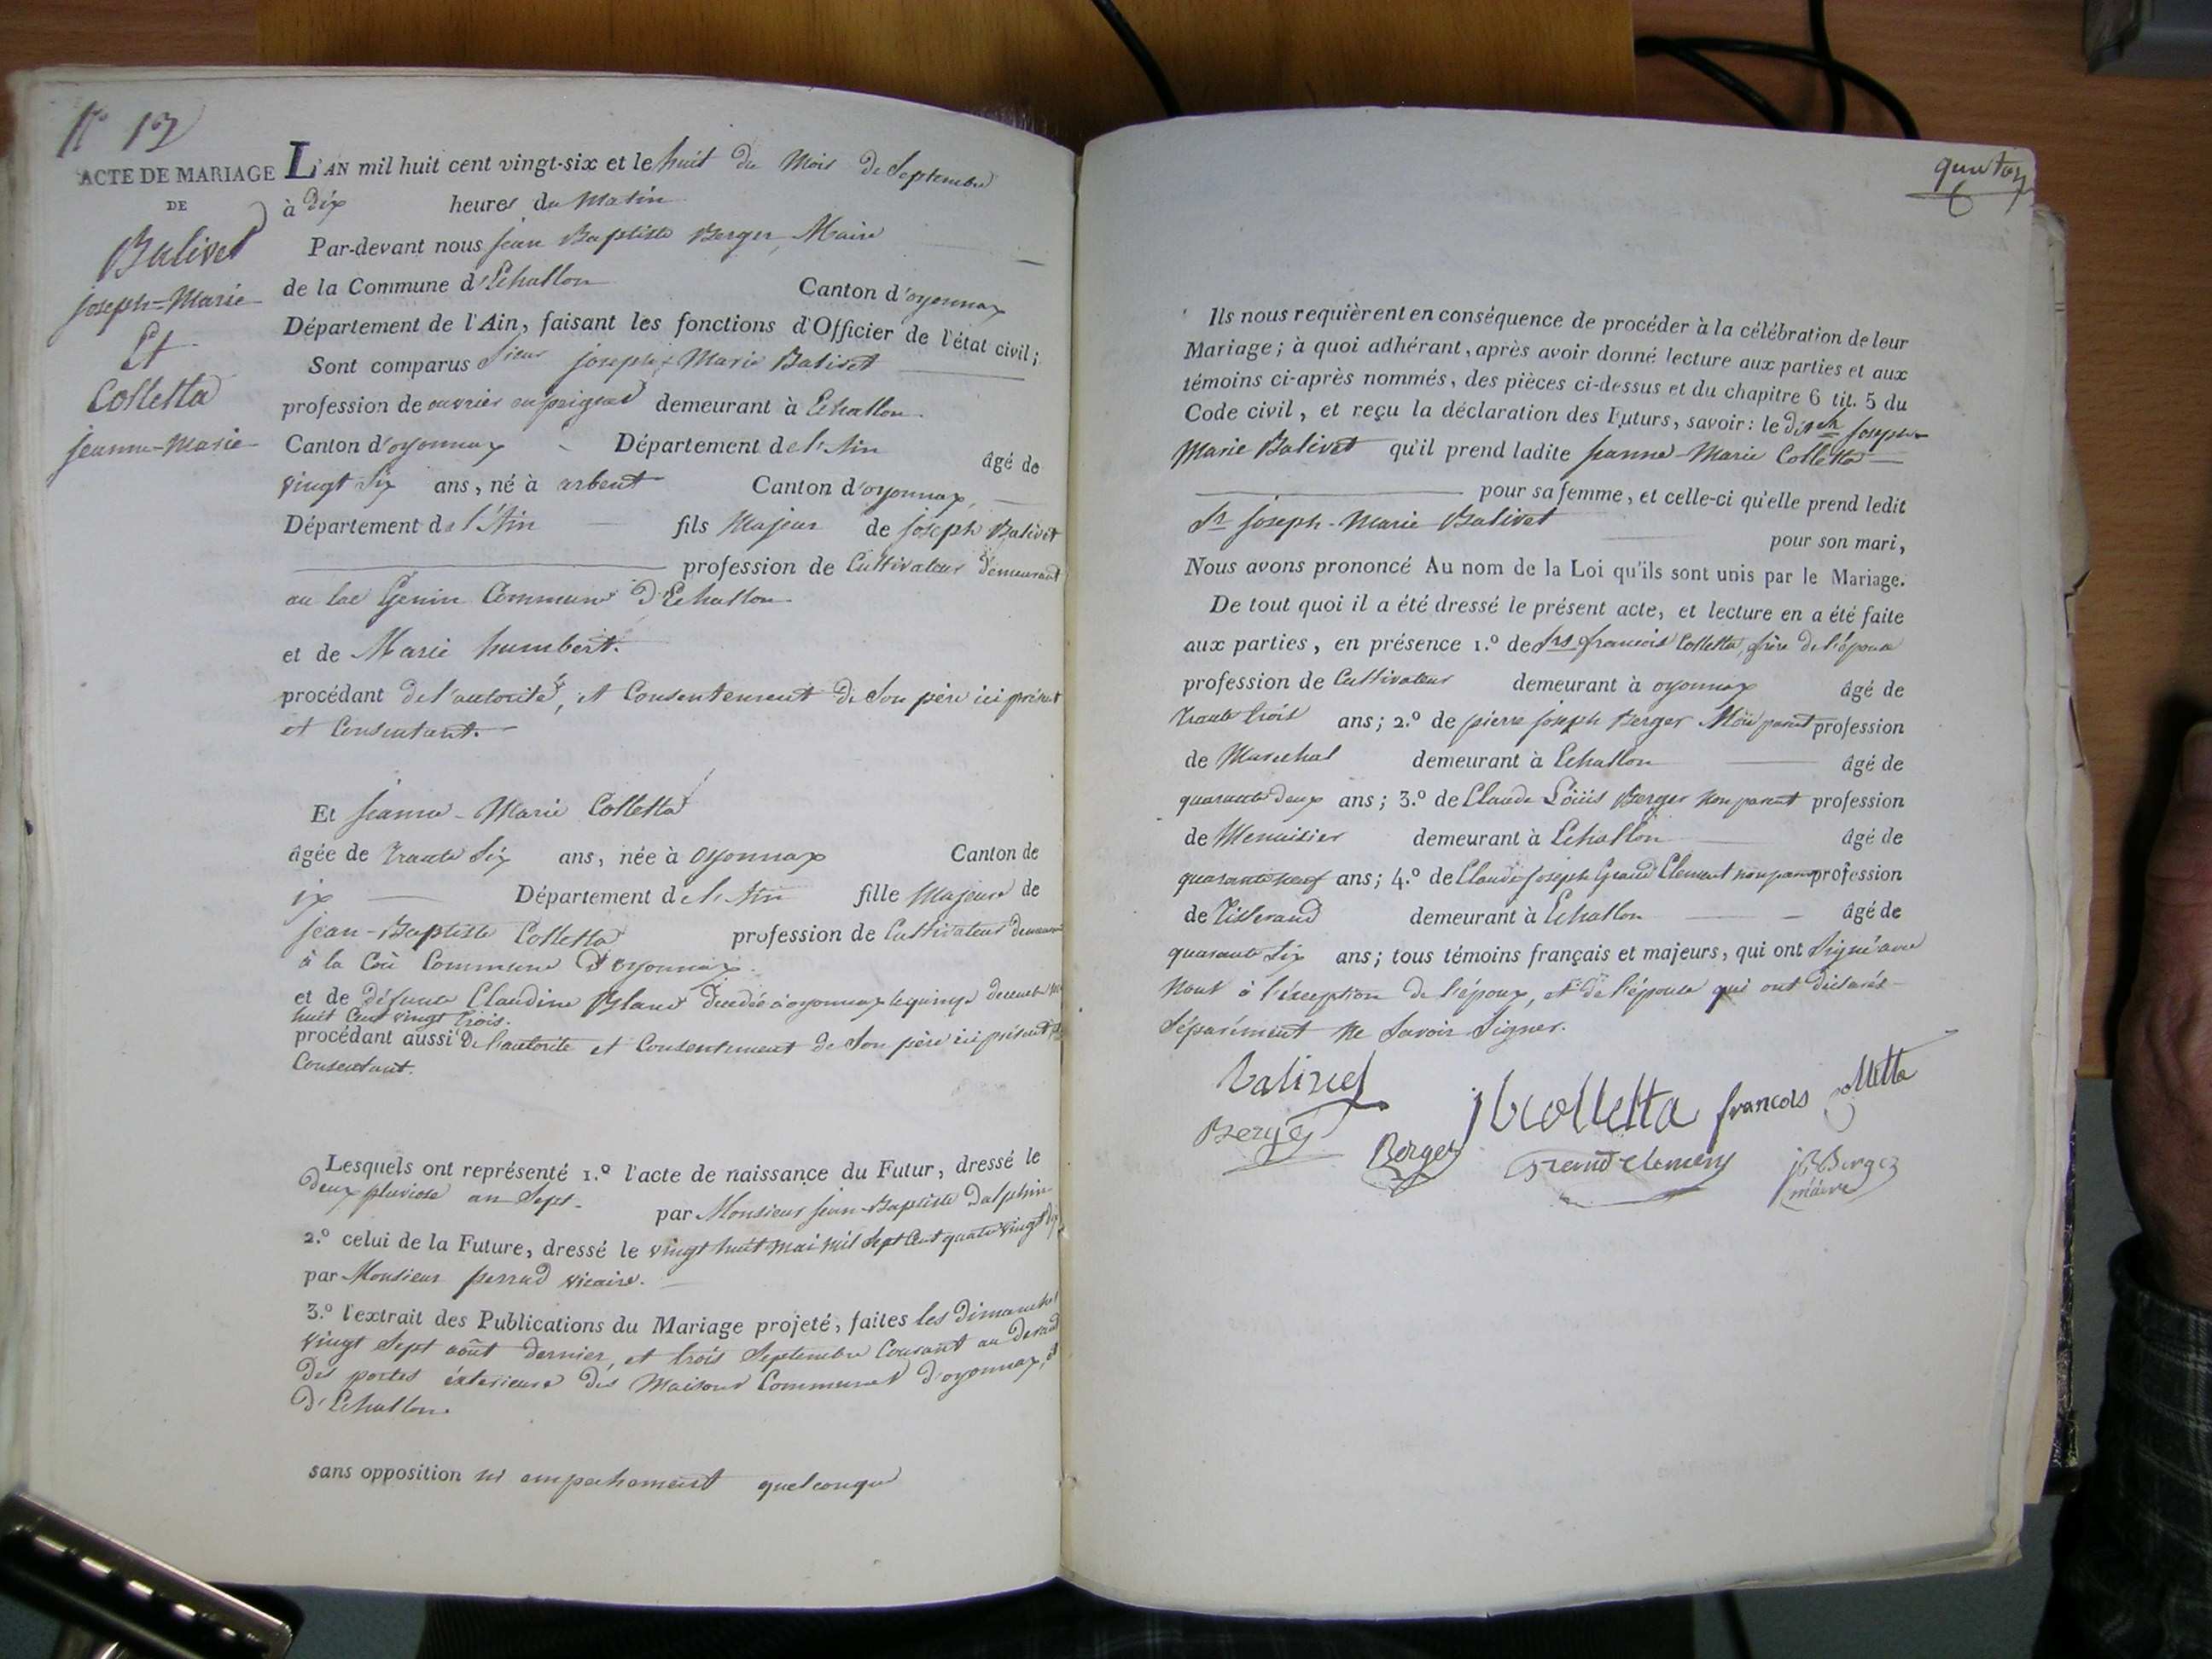 N° 13
ACTE DE MARIAGE
DE
Balivet
joseph-Marie
Et
Colletta
jeanne-Marie
L'AN mil huit cent vingt-six et le huit du Mois de Septembre
à dix heures du Matin
Par-devant nous jean Baptiste Berger, Maire
de la Commune d'Echallon Canton d'oyonnax
Département de l'Ain, faisant les fonctions d'Officier de l'état civil;
Sont comparus Sieur joseph Marie Balivet
profession de ouvrier en peignes demeurant à Echallon
Canton d'oyonnax Département de l'Ain âgé de
vingt Six ans, né à arbent Canton d'oyonnax,
Département de l'Ain fils Majeur de joseph Balivet
profession de Cultivateur demeurant
au lac Genin Commune d'Echallon
et de Marie humbert.
procédant de l'autorité, et Consentement de Son père ici présent
et Consentant.
Et jeanne-Marie Colletta
âgée de trante Six ans, née à Oyonnax Canton de
Département de l'Ain fille Majeure de
jean-Baptiste Colletta profession de Cultivateur demeurant
à la Commune d'oyonnax.
et de défunte Claudine Bland décédée à oyonnax le quinze decembre
huit Cent vingt trois.
procédant aussi de l'autorité et Consentement de Son père ici présent
Consentant.
Lesquels ont représenté 1.º l'acte de naissance du Futur, dressé le
deux pluviose an Sept. par Monsieur jean-Baptiste Dalphin
2.º celui de la Future, dressé le vingt huit mai mil Sept Cent quatre vingt dix
par Monsieur perrud vicaire.
3.º l'extrait des Publications du Mariage projeté, faites les dimanches
vingt Sept août dernier, et trois Septembre Courant au devant
des portes éxterieure des Maisons Communes d'oyonnax, et
d'Echallon.
sans opposition ni empechement quelconque
Ils nous requièrent en conséquence de procéder à la célébration de leur
Mariage; à quoi adhérant, après avoir donné lecture aux parties et aux
témoins ci-après nommés, des pièces ci-dessus et du chapitre 6 tit. 5 du
Code civil, et reçu la déclaration des Futurs, savoir: le dit Sr joseph-
Marie Balivet qu'il prend ladite jeanne-Marie Colletta
pour sa femme, et celle-ci qu'elle prend ledit
Sr joseph-Marie Balivet
pour son mari,
Nous avons prononcé Au nom de la Loi qu'ils sont unis par le Mariage.
De tout quoi il a été dressé le présent acte, et lecture en a été faite
aux parties, en présence 1.º de Srs francois Colletta, frère de l'épouse
profession de Cultivateur demeurant à oyonnax âgé de
trante trois ans; 2.º de pierre joseph Berger Non parent profession
de Marechal demeurant à Echallon âgé de
quarante deux ans; 3.º de Claude Loüis Berger non parent profession
de Menuisier demeurant à Echallon âgé de
quarante neuf ans; 4.º de Claude joseph Grand Clement non parent profession
de Tisserand demeurant à Echallon âgé de
quarante Six ans; tous témoins français et majeurs, qui ont Signé avec
Nous à l'éxception de l'époux, et de l'épouse qui ont déclarés
Séparément ne Savoir Signer.
balivet
jbcolletta francois colletta
Berger
Berger
Grand clement
jB Berger
maire